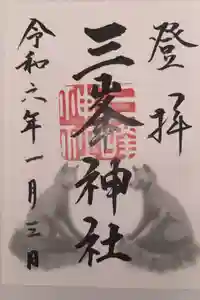 登拝
三峯神社
令和六年一月三日